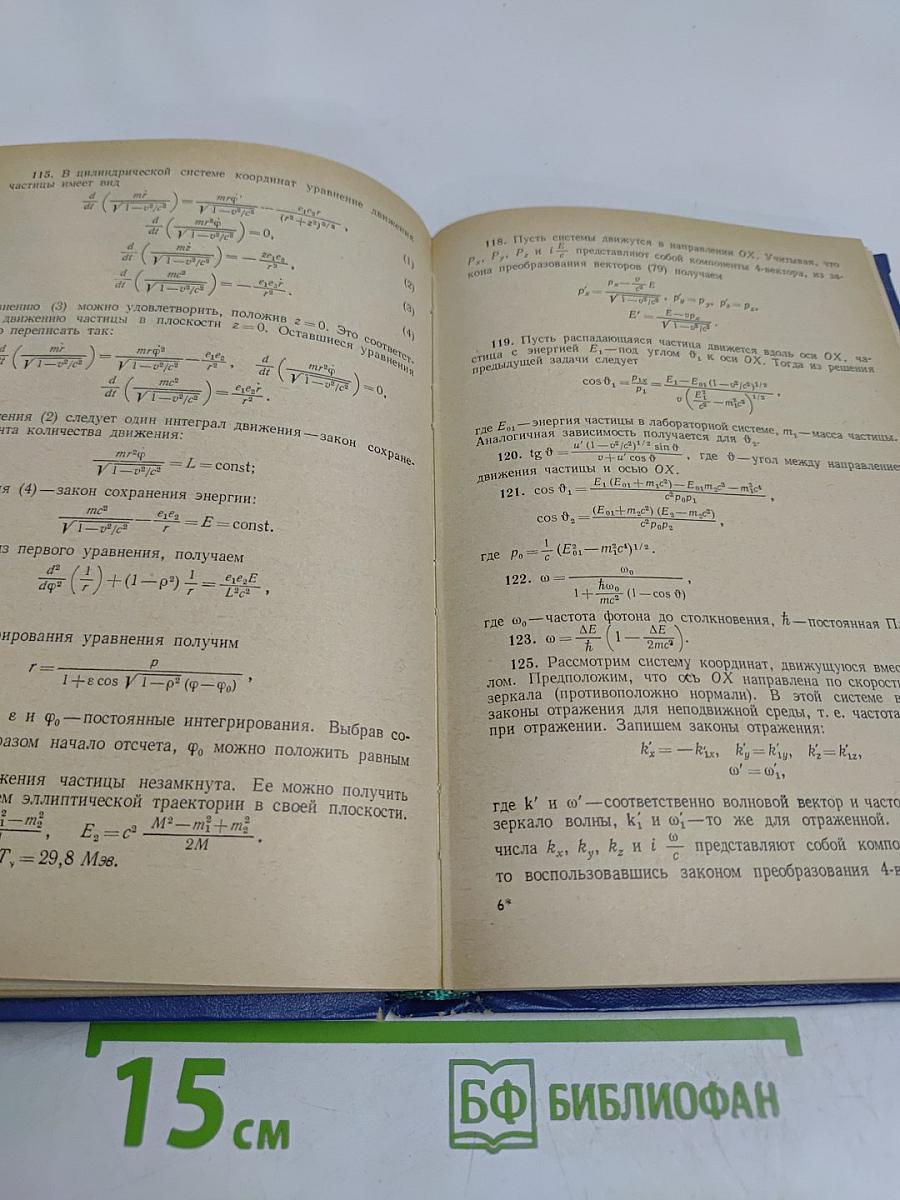 115. В цилиндрической системе координат уравнение движения
частицы имеет вид
d/dt (mṙ/√1−v²/c²) = mrφ̇²/√1−v²/c² − e₁e₂r/(r²+z²)^3/2 , (1)
d/dt (mr²φ̇/√1−v²/c²) = 0, (2)
d/dt (mż/√1−v²/c²) = − ze₁e₂/r² , (3)
d/dt (mc²/√1−v²/c²) = − e₁e₂ṙ/r² . (4)
нению (3) можно удовлетворить, положив z = 0. Это соответст-
движению частицы в плоскости z = 0. Оставшиеся уравнения
о переписать так:
d/dt (mṙ/√1−v²/c²) = mrφ̇²/√1−v²/c² − e₁e₂/r² , d/dt (mr²φ̇/√1−v²/c²) = 0,
d/dt (mc²/√1−v²/c²) = e₁e₂ṙ/r² .
ения (2) следует один интеграл движения — закон сохране-
нта количества движения:
mr²φ̇/√1−v²/c² = L = const;
ия (4) — закон сохранения энергии:
mc²/√1−v²/c² − e₁e₂/r = E = const.
из первого уравнения, получаем
d²/dφ² (1/r) + (1−ρ²) 1/r = e₁e₂E/L²c² ,
рирования уравнения получим
r = p/1+ε cos √1−ρ² (φ−φ₀) ,
ε и φ₀ — постоянные интегрирования. Выбрав со-
разом начало отсчета, φ₀ можно положить равным
жения частицы незамкнута. Ее можно получить
ем эллиптической траектории в своей плоскости.
²₁−m²₂ , E₂ = c² M²−m²₁+m²₂/2M .
Tᵥ = 29,8 Мэв.
118. Пусть системы движутся в направлении OX. Учитывая, что
pₓ, p_y, p_z и i E/c представляют собой компоненты 4-вектора, из за-
кона преобразования векторов (79) получаем
p′ₓ = pₓ − v/c² E/√1−v²/c² , p′_y = p_y, p′_z = p_z,
E′ = E−vpₓ/√1−v²/c² .
119. Пусть распадающаяся частица движется вдоль оси OX, ча-
стица с энергией E₁ — под углом ϑ₁ к оси OX. Тогда из решения
предыдущей задачи следует
cos ϑ₁ = p₁ₓ/p₁ = E₁−E₀₁(1−v²/c²)^1/2/v(E²₁/c² − m²₁c²)^1/2 ,
где E₀₁ — энергия частицы в лабораторной системе, m₁ — масса частицы.
Аналогичная зависимость получается для ϑ₂.
120. tg ϑ = u′ (1−v²/c²)^1/2 sin ϑ/v+u′ cos ϑ , где ϑ — угол между направление
движения частицы и осью OX.
121. cos ϑ₁ = E₁ (E₀₁+m₂c²)−E₀₁m₂c²−m²₁c⁴/c²p₀p₁ ,
cos ϑ₂ = (E₀₁+m₂c²) (E₂−m₂c²)/c²p₀p₂ ,
где p₀ = 1/c (E²₀₁−m²₁c⁴)^1/2.
122. ω = ω₀/1+ ħω₀/mc² (1−cos ϑ) ,
где ω₀ — частота фотона до столкновения, ħ — постоянная Пл
123. ω = ΔE/ħ (1− ΔE/2mc²).
125. Рассмотрим систему координат, движущуюся вмес
лом. Предположим, что ось OX направлена по скорости
зеркала (противоположно нормали). В этой системе в
законы отражения для неподвижной среды, т. е. частота
при отражении. Запишем законы отражения:
k′ₓ = −k′₁ₓ, k′_y = k′₁_y, k′_z = k′₁_z,
ω′ = ω′₁,
где k′ и ω′ — соответственно волновой вектор и часто
зеркало волны, k′₁ и ω′₁ — то же для отраженной.
числа kₓ, k_y, k_z и i ω/c представляют собой компо
то воспользовавшись законом преобразования 4-в
6*
15 см
БФ БИБЛИОФАН